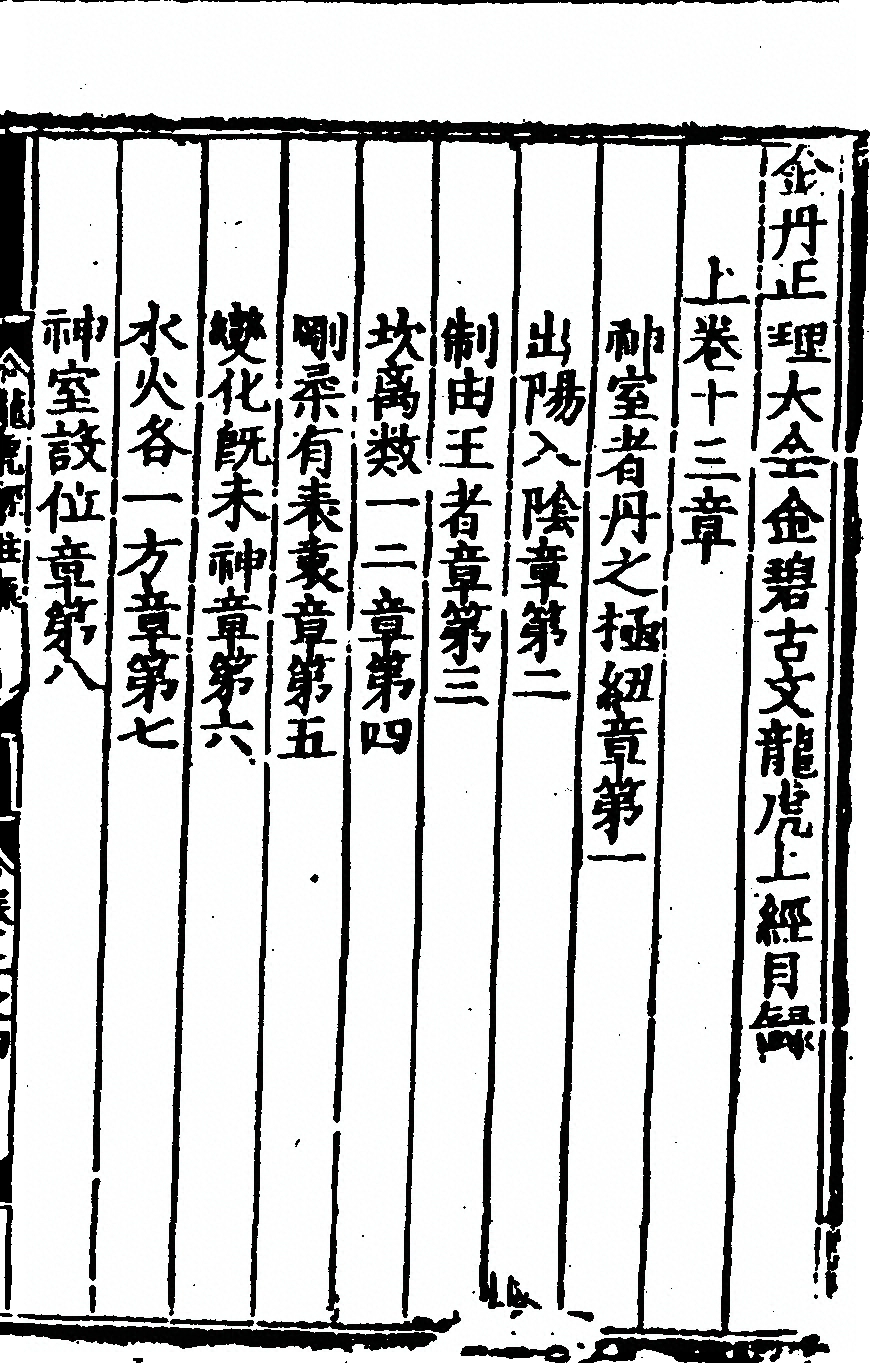 金丹正理大全金碧古文龍虎上經目錄
上卷十三章
神室者丹之極紐章第一
出陽入陰章第二
制由王者章第三
坎离数一二章第四
剛柔有表裏章第五
變化既未神章第六
水火各一方章第七
神室設位章第八